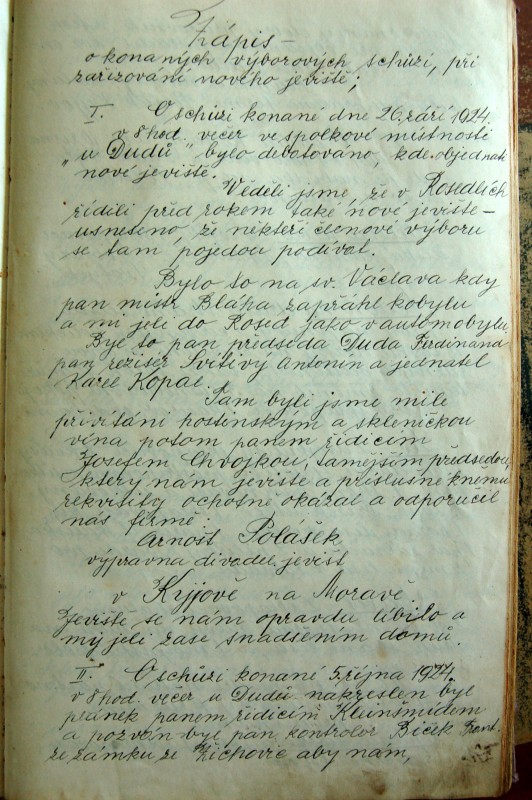 Zápis –
o konaných výborových schůzí, při
zařizování nového jeviště;
I. O schůzi konané dne 26. září 1924.
v 8 hod. večer ve spolkové místnosti
„u Dudů" bylo debatováno, kde objednati
nové jeviště.
Věděli jsme, že v Rosedlích
řídili před rokem také nové jeviště –
usneseno, že někteří členové výboru
se tam pojedou podívat.
Bylo to na sv. Václava kdy
pan mistr Bláha zapřáhl kobylu
a mi jeli do Rosed jako v automobylu.
Byl to pan předseda Duda Ferdinand
pan režisér Svítivý Antonín a jednatel
Karel Kopal.
Tam byli jsme mile
přivítáni hostinským a skleničkou
vína potom panem řídícím
Josefem Chvojkou, tamějším předsedou,
který nám jeviště a příslušné knému
rekvisity ochotně okázal a odporučil
nás firmě:
Arnošt Polášek
výpravna divadel. jevišť
v Kyjově na Moravě.
Jeviště se nám opravdu líbilo a
mý jeli zase snadšením domů.
II. O schůzi konané 5. října 1924.
v 8 hod. večer u Dudů nakreslen byl
plánek panem řídícím Kleinšmídem
a pozván byl pan kontrolor Bíček Frant.
ze zámku ze Žichovic aby nám,